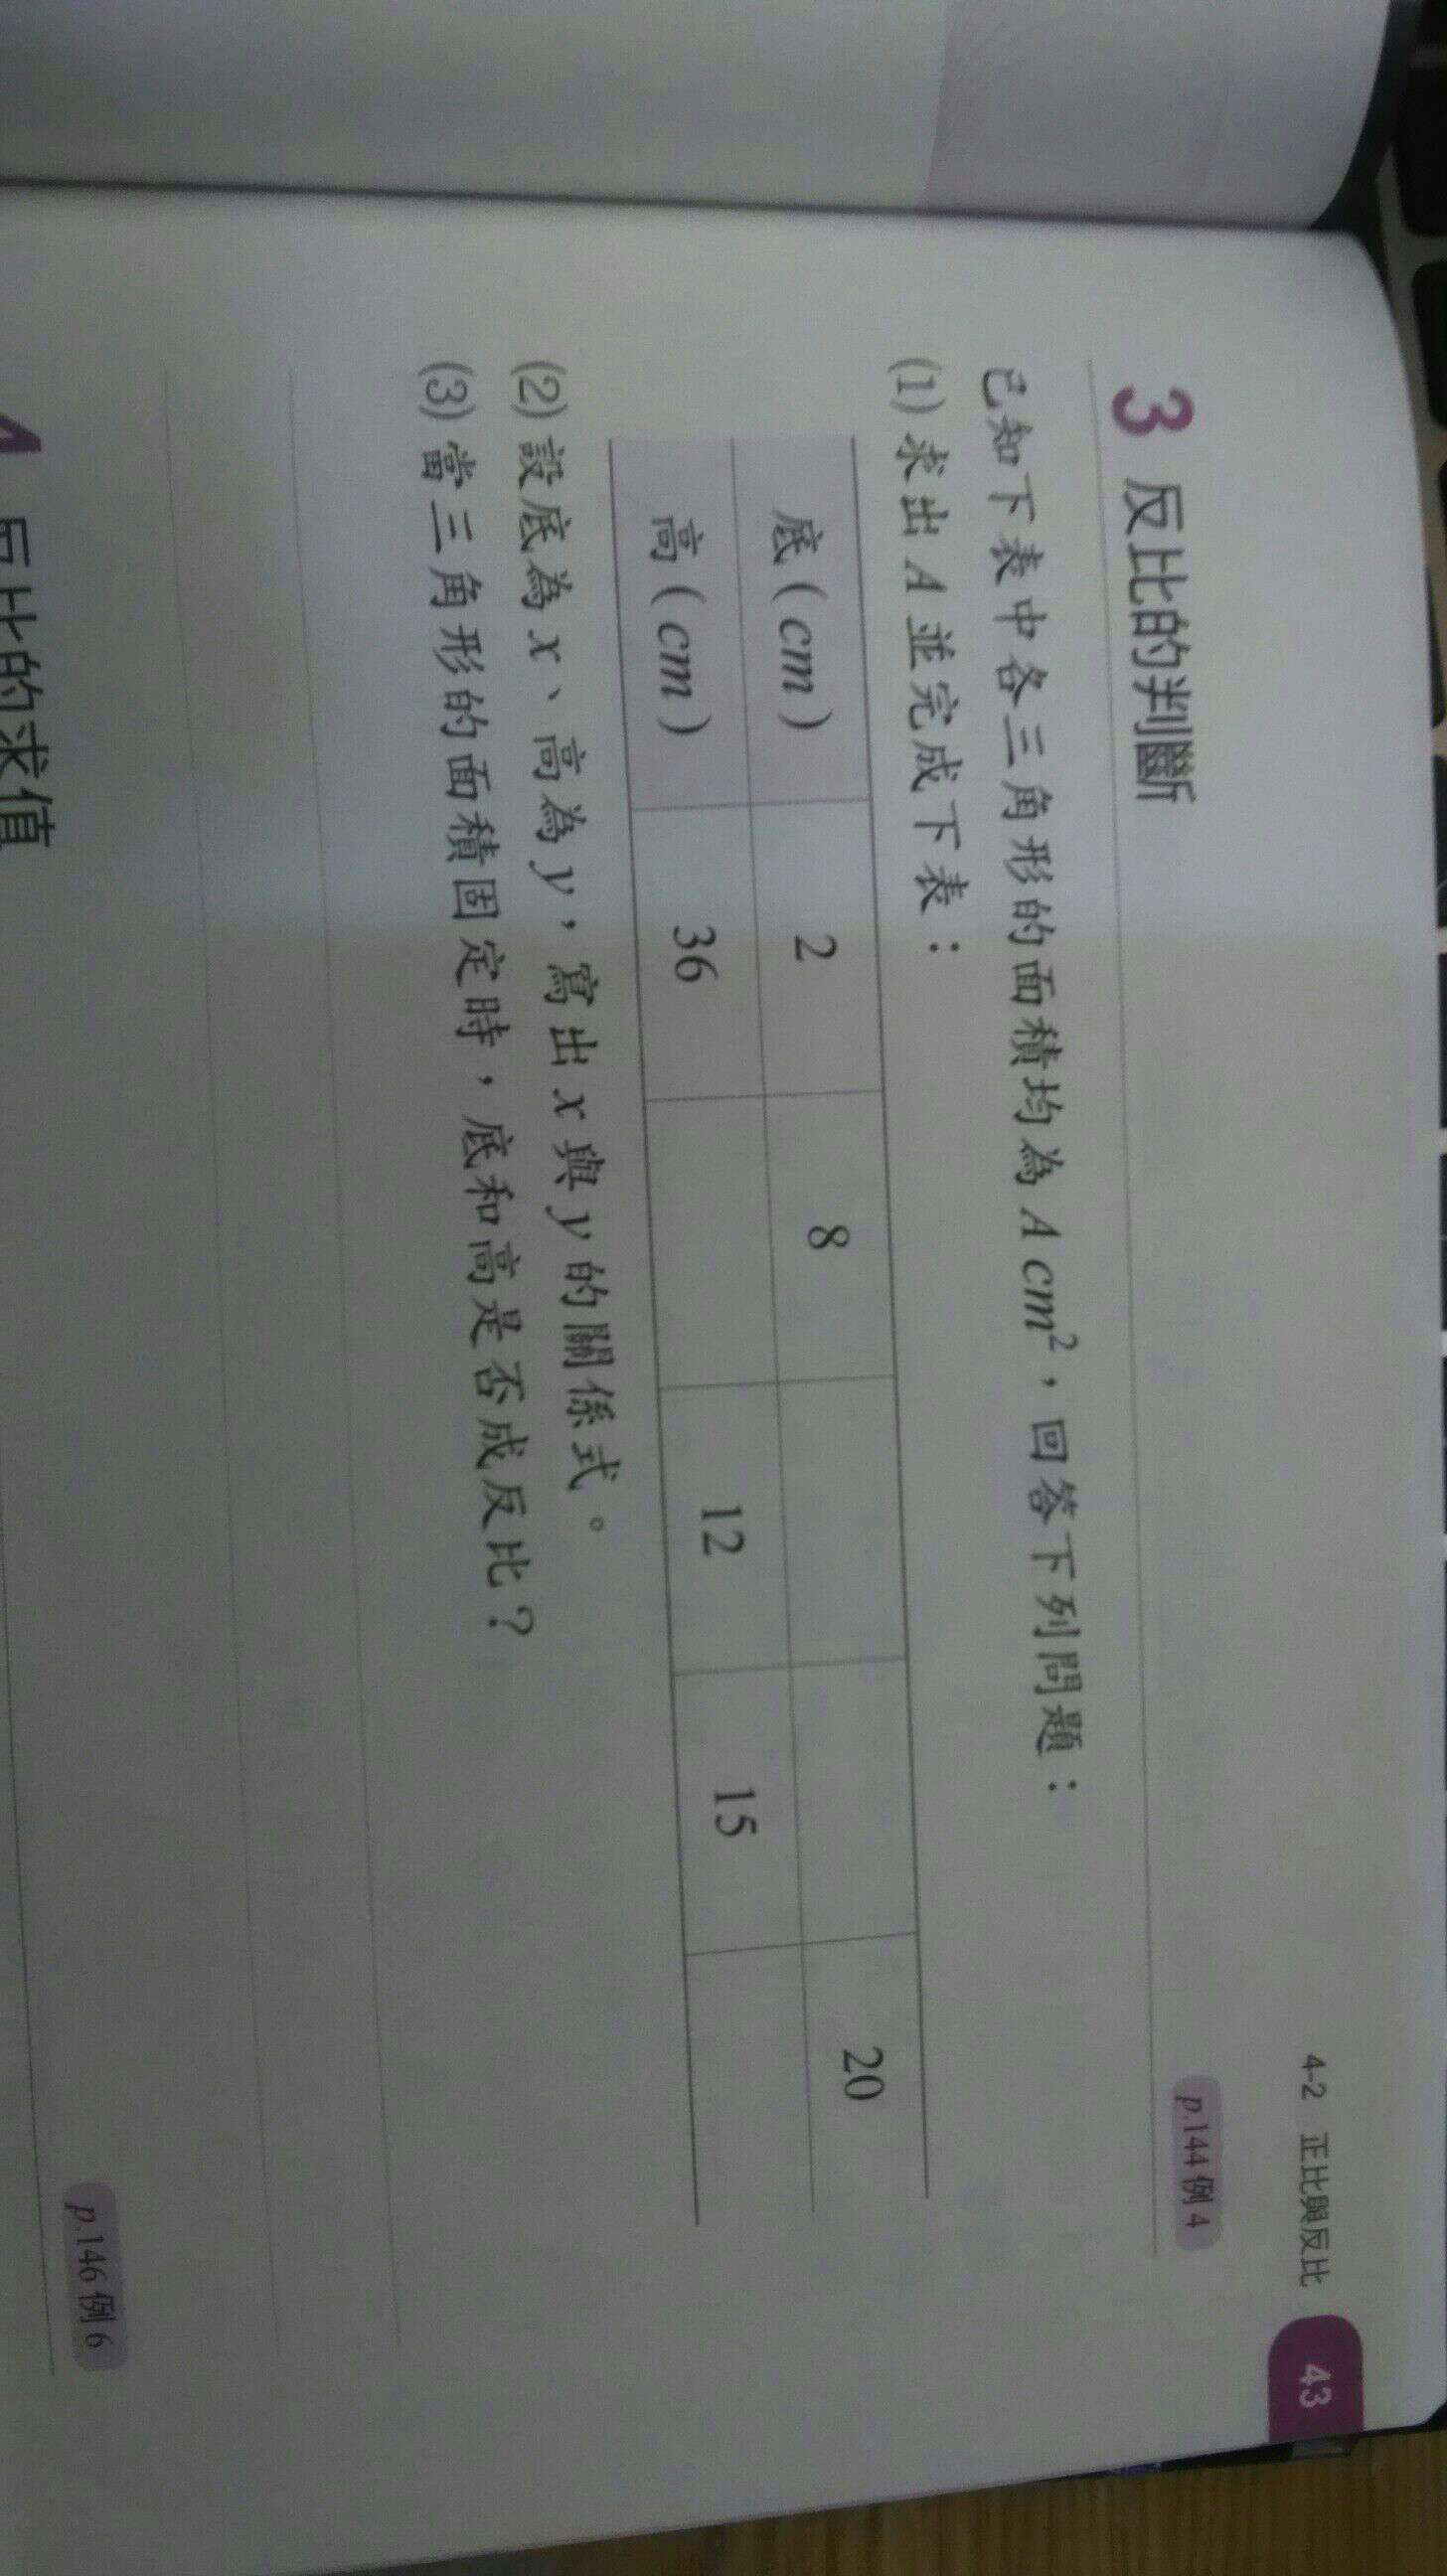 4-2 正比與反比 43
3 反比的判斷 p.144 例 4
已知下表中各三角形的面積均為 A cm²，回答下列問題：
(1) 求出 A 並完成下表：
底 ( cm ) 2 8 20
高 ( cm ) 36 12 15
(2) 設底為 x、高為 y，寫出 x 與 y 的關係式。
(3) 當三角形的面積固定時，底和高是否成反比？
4 反比的求值 p.146 例 6